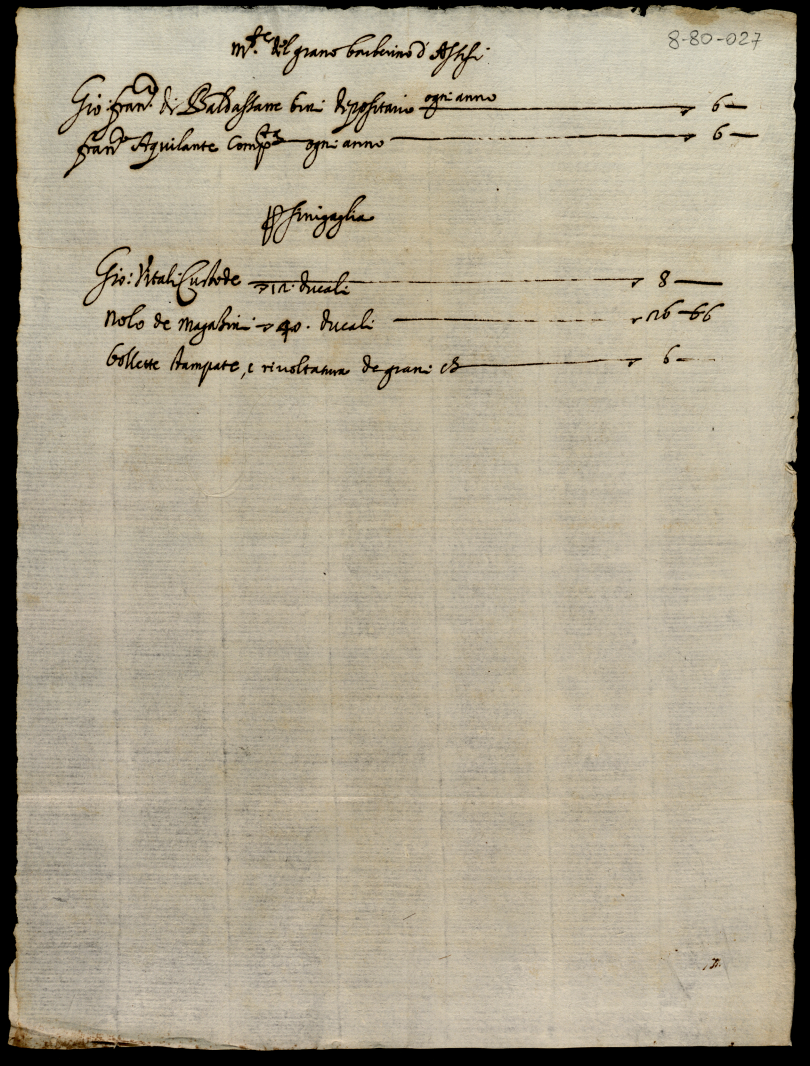 8-80-027
M.te del grano barberino d'Assisi
Gio: fran.co di Baldassarre bini depositario ogni anno 6 —
fran.co Aquilante Comp.ta ogni anno 6 —
Sinigaglia
Gio: Vitali Custode 12. ducali 8 —
Nolo de magazini 40. ducali 26 - 66
bollette stampate, e rivoltatura de grani 6 —